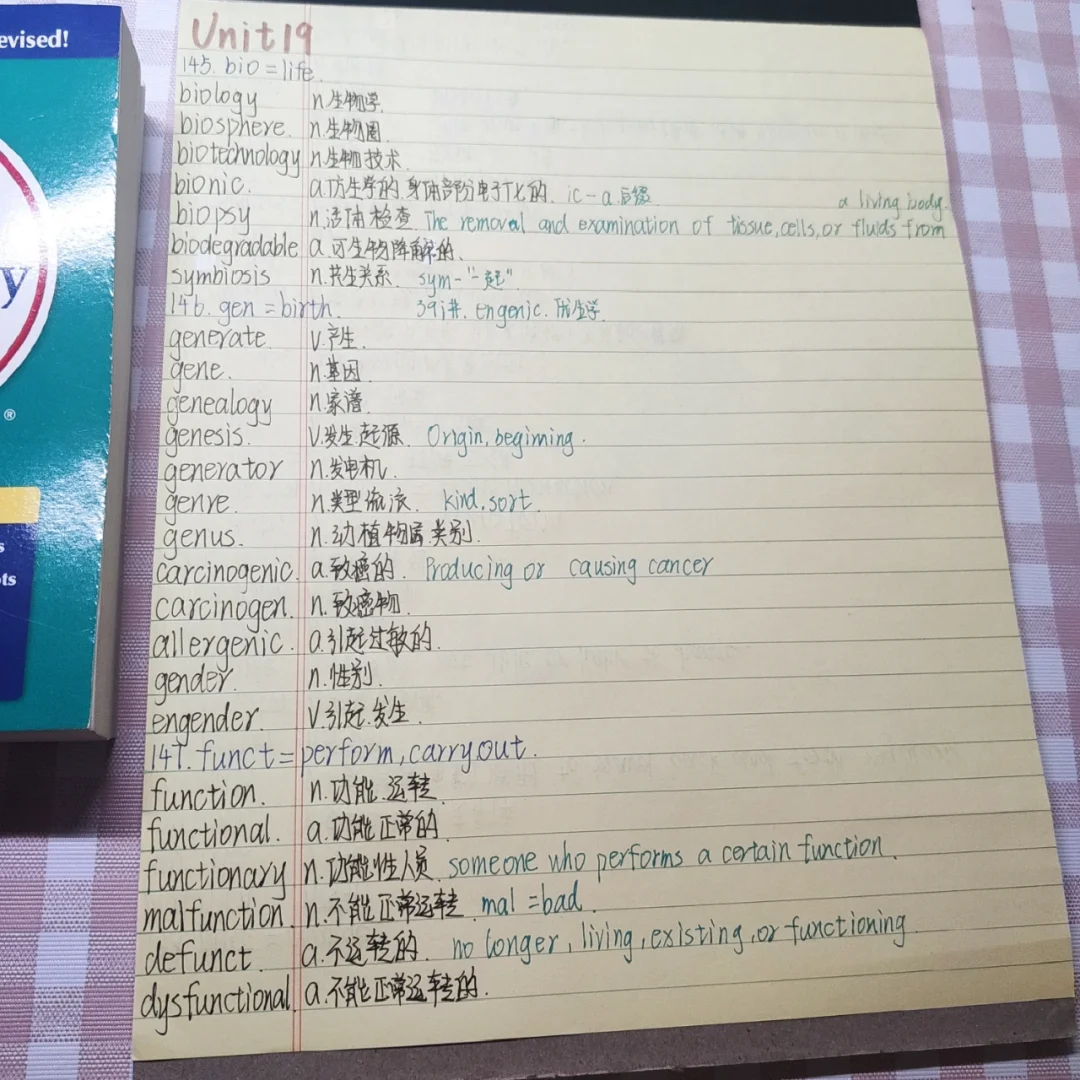 evised!
y
®
s
ots
Unit 19
145. bio = life.
biology n.生物学.
biosphere. n.生物圈.
biotechnology n.生物技术.
bionic. a.仿生学的.身体部分电子化的. ic-a.后缀
a living body.
biopsy n.活体检查 The removal and examination of tissue,cells,or fluids from
biodegradable a.可生物降解的.
symbiosis n.共生关系. sym-"一起"
146. gen = birth. engenic. 优生学.
generate. v.产生.
gene. n.基因
genealogy n.家谱.
genesis. v.发生.起源. Origin, begiming.
generator n.发电机.
genre. n.类型.流派. kind.sort.
genus. n.动植物属.类别.
carcinogenic. a.致癌的. Producing or causing cancer
carcinogen. n.致癌物.
allergenic. a.引起过敏的.
gender. n.性别.
engender. v.引起.发生.
147. funct = perform, carry out.
function. n.功能.运转.
functional. a.功能正常的.
functionary n.功能性人员. someone who performs a certain function.
malfunction. n.不能正常运转. mal =bad.
defunct. a.不运转的. no longer, living, existing, or functioning.
dysfunctional. a.不能正常运转的.